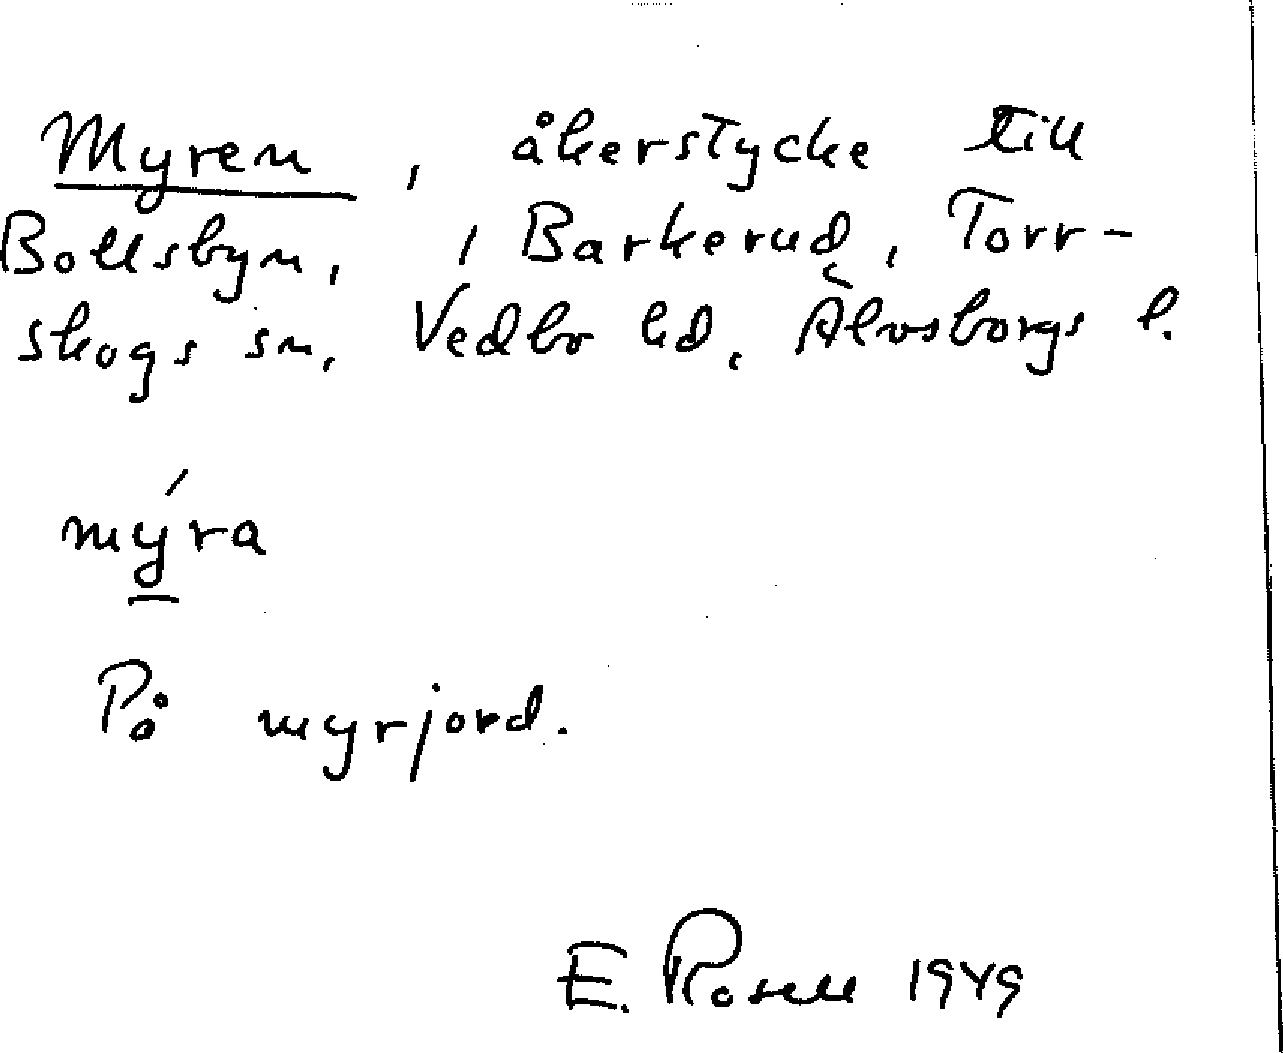 Myren, åkerstycke till
Bollsbyn, i Barkerud, Torr-
skogs sn, Vedbo hd, Älvsborgs l.
mýra
På myrjord.
E. Rosell 1949